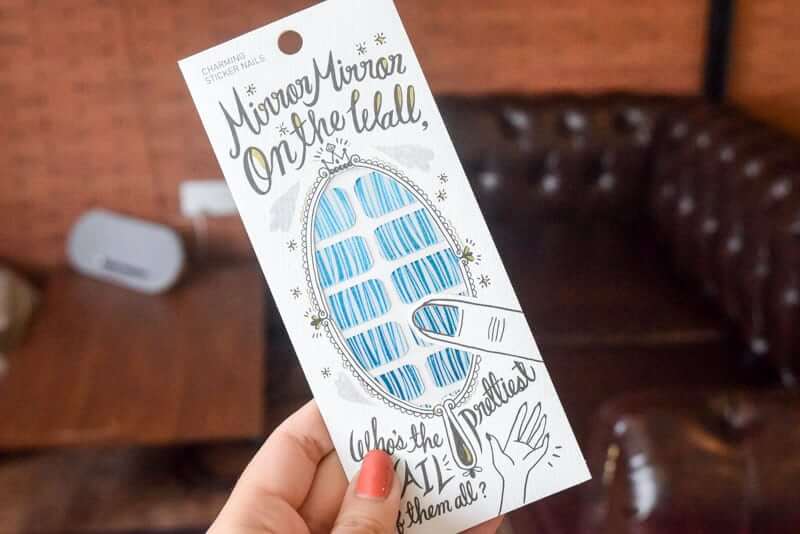 CHARMING
STICKER NAILS
Mirror Mirror
On the Wall,
Who's the prettiest
AIL
f them all?